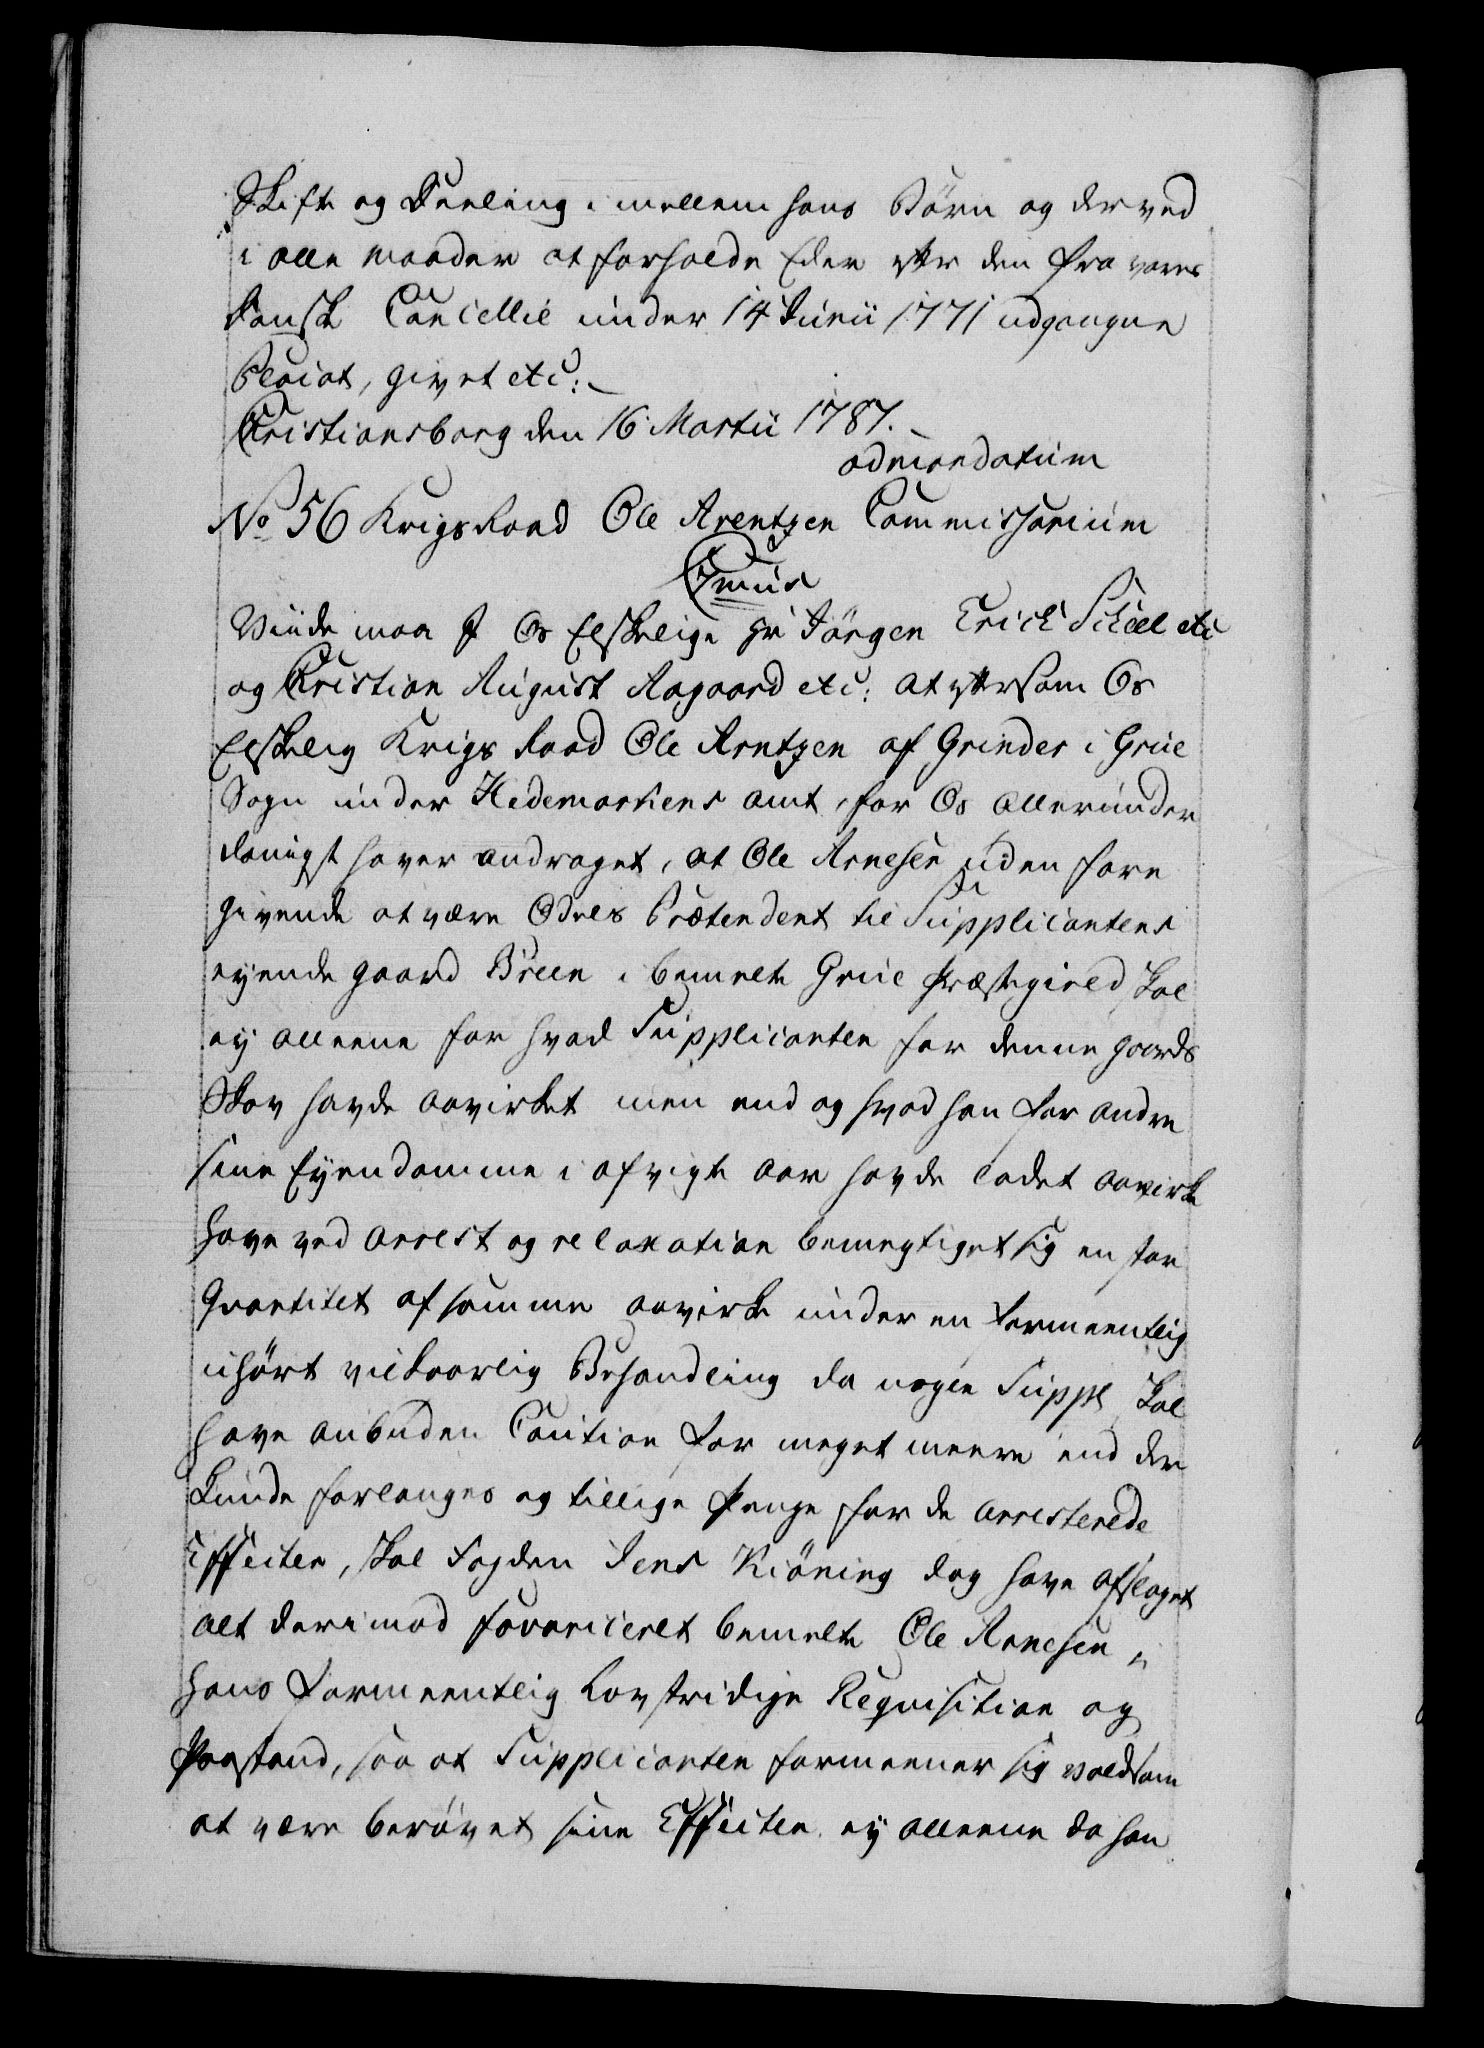 Skifte og Deeling i mellem hans Börn og derved
i alle maader at forholde Eder efter den fra vores
Danske Cancellie under 14 Junii 1771 udgangne
Placat, givet etc:
Christiansborg den 16 Martii 1787.
admandatum
No 56 Krigs Raad Ole Arentzen Commissorium
Cmus
Viide maa I Os Elskelige Hr Jörgen Erich Scheel etc
og Christian August Aagaard etc: at eftersom Os
Elskelig Krigs Raad Ole Arntzen af Grinder i Grue
Sogn under Hedemarkens amt, for Os allerunder
danigst haver andraget, at Ole Arnesen uden fore
givende at være Odels Prætendent til Supplicantens
eyende gaard Breen i bemelte Grue Præstegield skal
ey alleene for hvad Supplicanten for denne gaards
Skov havde aavirket men end og hvad han for andre
sine Eyendomme i afvigte aar havde ladet aavirke
have ved arrest og relaxation bemegtiget sig en stor
Qvantitet af samme aavirke under en formeentlig
uhørt vilkaarlig Behandling da nogen Suppl. skal
have anbuden Caution for meget meere end der
kunde forlanges og tillige Penge for de arresterede
Effecter, skal Fogden Jens Kiöning dog have afslaget
alt derimod favoriceret bemelte Ole Arnesen i
hans formeentlig Lovstridige Reqvisition og
Paastand, saa at Supplicanten formeener sig voldsom
at være berøvet sine Effecter ey alleene da han